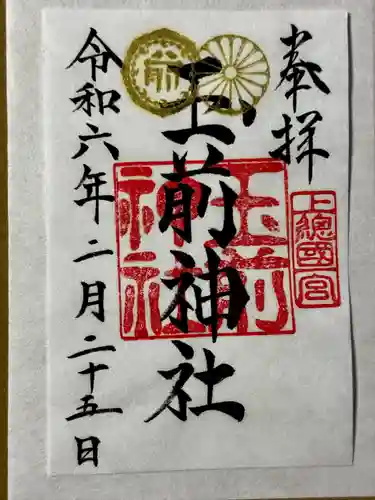 奉拝
上總國一宮
玉前神社
玉前神社
令和六年二月二十五日